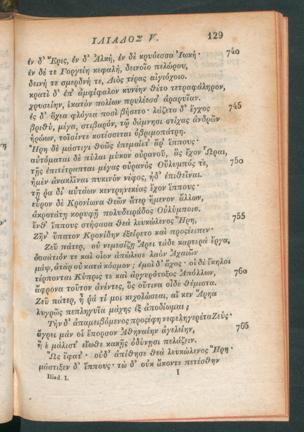 ΙΛΙΑΔΟΣ V. 129
ἐν δ' Ἔρις, ἐν δ' Ἀλκή, ἐν δὲ κρυόεσσα Ἰωκή· 740
ἐν δέ τε Γοργείη κεφαλή, δεινοῖο πελώρου,
δεινή τε σμερδνή τε, Διὸς τέρας αἰγιόχοιο.
κρατὶ δ' ἐπ' ἀμφίφαλον κυνέην θέτο τετραφάληρον,
χρυσείην, ἑκατὸν πολίων πρυλέεσσ' ἀραρυῖαν.
ἐς δ' ὄχεα φλόγεα ποσὶ βήσετο· λάζετο δ' ἔγχος 745
βριθύ, μέγα, στιβαρόν, τῷ δάμνησι στίχας ἀνδρῶν
ἡρώων, τοῖσίντε κοτέσσεται ὀβριμοπάτρη.
Ἥρη δὲ μάστιγι θοῶς ἐπεμαίετ' ἄρ' ἵππους·
αὐτόμαται δὲ πύλαι μύκον οὐρανοῦ, ἃς ἔχον Ὧραι,
τῆς ἐπιτέτραπται μέγας οὐρανὸς Οὔλυμπός τε, 750
ἠμὲν ἀνακλῖναι πυκινὸν νέφος, ἠδ' ἐπιθεῖναι.
τῇ ῥα δι' αὐτάων κεντρηνεκέας ἔχον ἵππους·
εὗρον δὲ Κρονίωνα θεῶν ἄτερ ἥμενον ἄλλων,
ἀκροτάτῃ κορυφῇ πολυδειράδος Οὐλύμποιο.
ἔνθ' ἵππους στήσασα θεὰ λευκώλενος Ἥρη, 755
Ζῆν' ὕπατον Κρονίδην ἐξείρετο καὶ προςέειπεν·
Ζεῦ πάτερ, οὐ νεμεσίζῃ Ἄρει τάδε καρτερὰ ἔργα,
ὁσσάτιόν τε καὶ οἷον ἀπώλεσε λαὸν Ἀχαιῶν
μάψ, ἀτὰρ οὐ κατὰ κόσμον; ἐμοὶ δ' ἄχος· οἱ δὲ ἕκηλοι
τέρπονται Κύπρις τε καὶ ἀργυρότοξος Ἀπόλλων, 760
ἄφρονα τοῦτον ἀνέντες, ὃς οὔτινα οἶδε θέμιστα.
Ζεῦ πάτερ, ἦ ῥά τί μοι κεχολώσεαι, αἴ κεν Ἄρηα
λυγρῶς πεπληγυῖα μάχης ἐξ ἀποδίωμαι;
Τὴν δ' ἀπαμειβόμενος προςέφη νεφεληγερέτα Ζεύς·
ἄγρει μάν οἱ ἔπορσον Ἀθηναίην ἀγελείην, 765
ἥ ἑ μάλιστ' εἴωθε κακῇς ὀδύνῃσι πελάζειν.
Ὣς ἔφατ'· οὐδ' ἀπίθησε θεὰ λευκώλενος Ἥρη·
μάστιξεν δ' ἵππους· τὼ δ' οὐκ ἄκοντε πετέσθην
Iliad. I. I